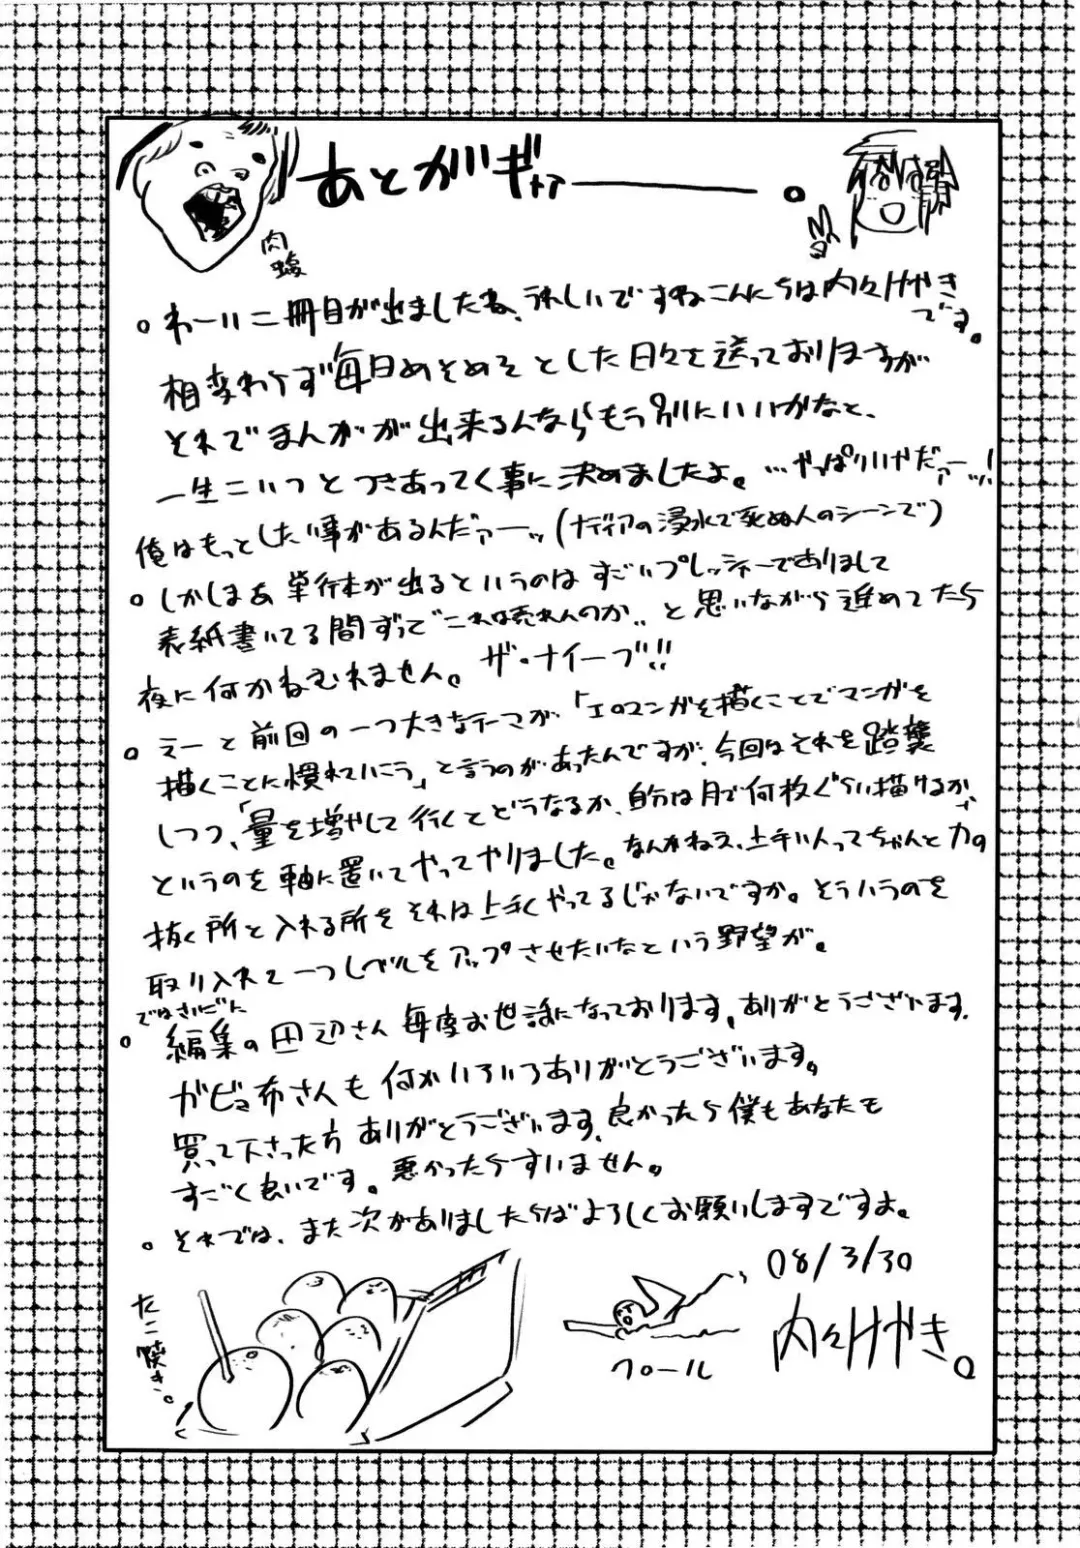 あとがギャァーーー。
肉
。わーい二冊目が出ましたね、うれしいですねこんにちは内々けやきです。
相変わらず毎日めそめそとした日々を送っておりますが
それでまんがが出来るんならもう別にいいかなと、
一生こいつとつきあってく事に決めましたよ。…やっぱりいやだァーッ!
俺はもっとしたい事があるんだァーッ(ナディアの浸水で死ぬ人のシーンで)
。しかしまあ単行本が出るというのはすごいプレッシャーでありまして
表紙書いてる間ずって“これは売れんのか..と思いながら進めてたら
夜に何かねむれません。ザ・ナイーブ!!
。えーと前回の一つ大きなテーマが「エロマンガを描くことでマンガを
描くことに慣れていこう」と言うのがあったんですが、今回はそれを踏襲
しつつ、「量を増やして行くとどうなるか、自分は月で何枚ぐらい描けるか」
というのを軸に置いてやってやりました。なんかねえ、上手い人ってちゃんと力の
抜く所と入れる所をそれは上手くやってるじゃないですか。そういうのを
取り入れて一つレベルをアップさせたいなという野望が。
ではさいごに
。編集の田辺さん毎度お世話になっております。ありがとうございます。
ガビョ布さんも何かいろいろありがとうございます。
買って下さった方ありがとうございます、良かったら僕もあなたも
すごく良いです。悪かったらすいません。
。それでは、また次がありましたらばよろしくお願いしますですよ。
たこ焼き。
クロール
08/3/30
内々けやき。